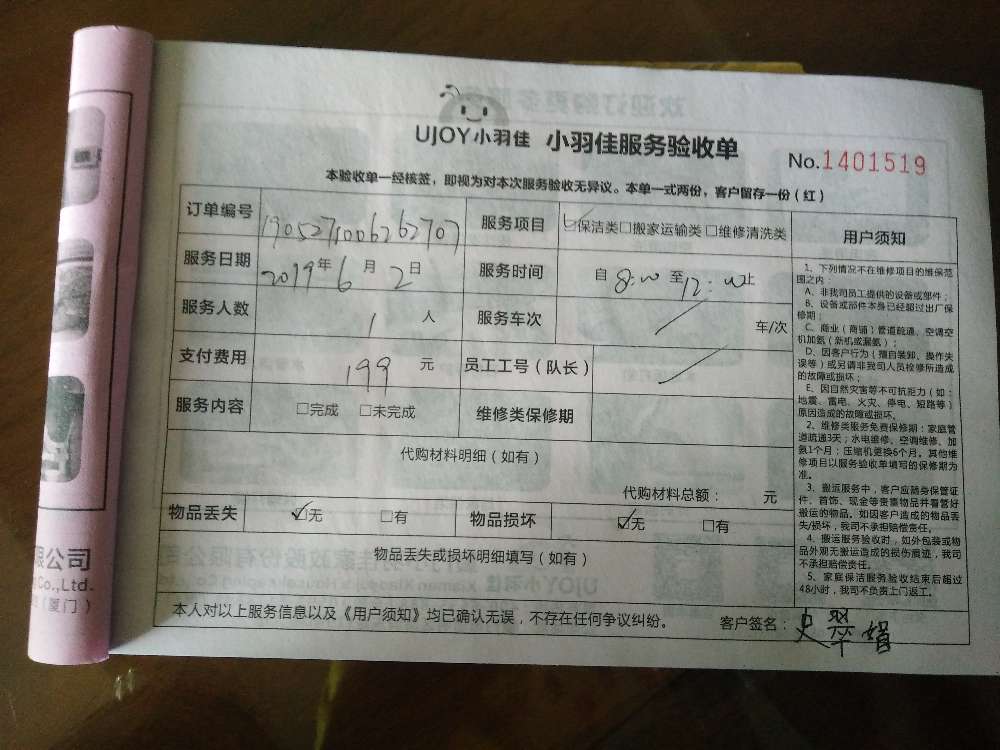 UJOY小羽佳 小羽佳服务验收单
No.1401519
本验收单一经核签，即视为对本次服务验收无异议。本单一式两份，客户留存一份（红）
订单编号 1905271006262707 服务项目 ☑保洁类□搬家运输类 □维修清洗类
服务日期 2019年6月2日 服务时间 自8:00至12:00止
服务人数 1 人 服务车次 / 车/次
支付费用 199 元 员工工号（队长） /
服务内容 □完成 □未完成 维修类保修期
代购材料明细（如有）
代购材料总额： 元
物品丢失 ☑无 □有 物品损坏 ☑无 □有
物品丢失或损坏明细填写（如有）
本人对以上服务信息以及《用户须知》均已确认无误，不存在任何争议纠纷。 客户签名：史翠娟
用户须知
1、下列情况不在维修项目的维保范
围之内
A、非我司员工提供的设备或部件；
B、设备或部件本身已经超过出厂保
修期；
C、商业（商铺）管道疏通、空调空
机加氨（新机或漏氨）；
D、因客户行为（擅自装卸、操作失
误等）或另请非我司人员检修所造成
的故障或损坏；
E、因自然灾害等不可抗拒力（如：
地震、雷电、火灾、停电、短路等）
原因造成的故障或损坏。
2、维修类服务免费保修期：家庭管
道疏通3天；水电维修、空调维修、加
氨1个月；压缩机更换6个月。其他维
修项目以服务验收单填写的保修期为
准。
3、搬运服务中，客户应随身保管证
件、首饰、现金等贵重物品并看管好
搬运的物品。如因客户造成的物品丢
失/损坏，我司不承担赔偿责任。
4、搬运服务验收时，如外包装或物
品外观无搬运造成的损伤痕迹，我司
不承担赔偿责任。
5、家庭保洁服务验收结束后超过
48小时，我司不负责上门返工。
限公司
Co.,Ltd.
（厦门）